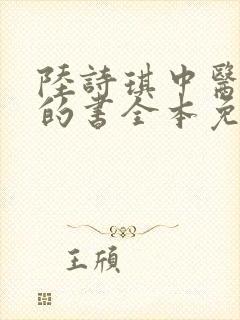 陸詩琪中醫
的書全本免
王頎